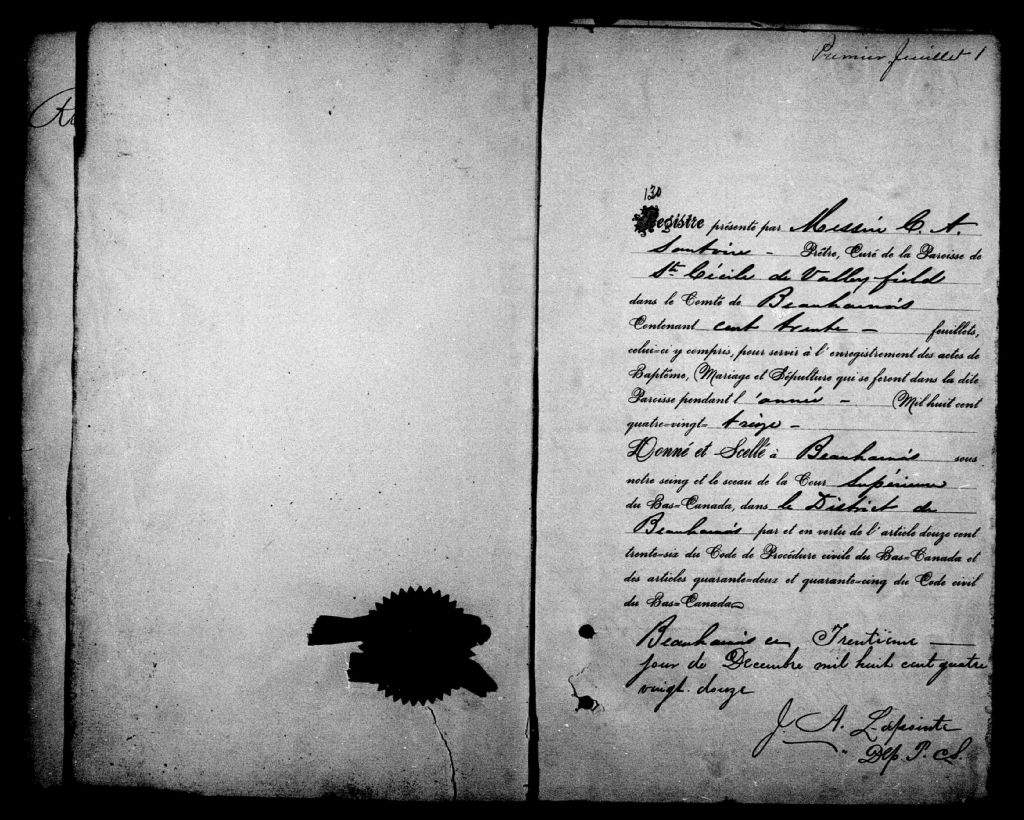 Premier feuillet 1
130
Registre présenté par Messire C. A.
Santoire - Prêtre, Curé de la Paroisse de
St. Cécile de Valleyfield
dans le Comté de Beauharnois
Contenant cent trente - feuillets,
celui-ci y compris, pour servir à l'enregistrement des actes de
Baptême, Mariage et Sépulture qui se feront dans la dite
Paroisse pendant l'année - Mil huit cent
quatre-vingt- treize -
Donné et Scellé à Beauharnois sous
notre seing et le sceau de la Cour Supérieure
du Bas-Canada, dans le District de
Beauharnois par et en vertu de l'article douze cent
trente-six du Code de Procédure civile du Bas-Canada et
des articles quarante-deux et quarante-cinq du Code civil
du Bas-Canada
Beauharnois ce Trentième
jour de Décembre mil huit cent quatre
vingt douze
J. A. Lapointe
Dep. P. C. S.